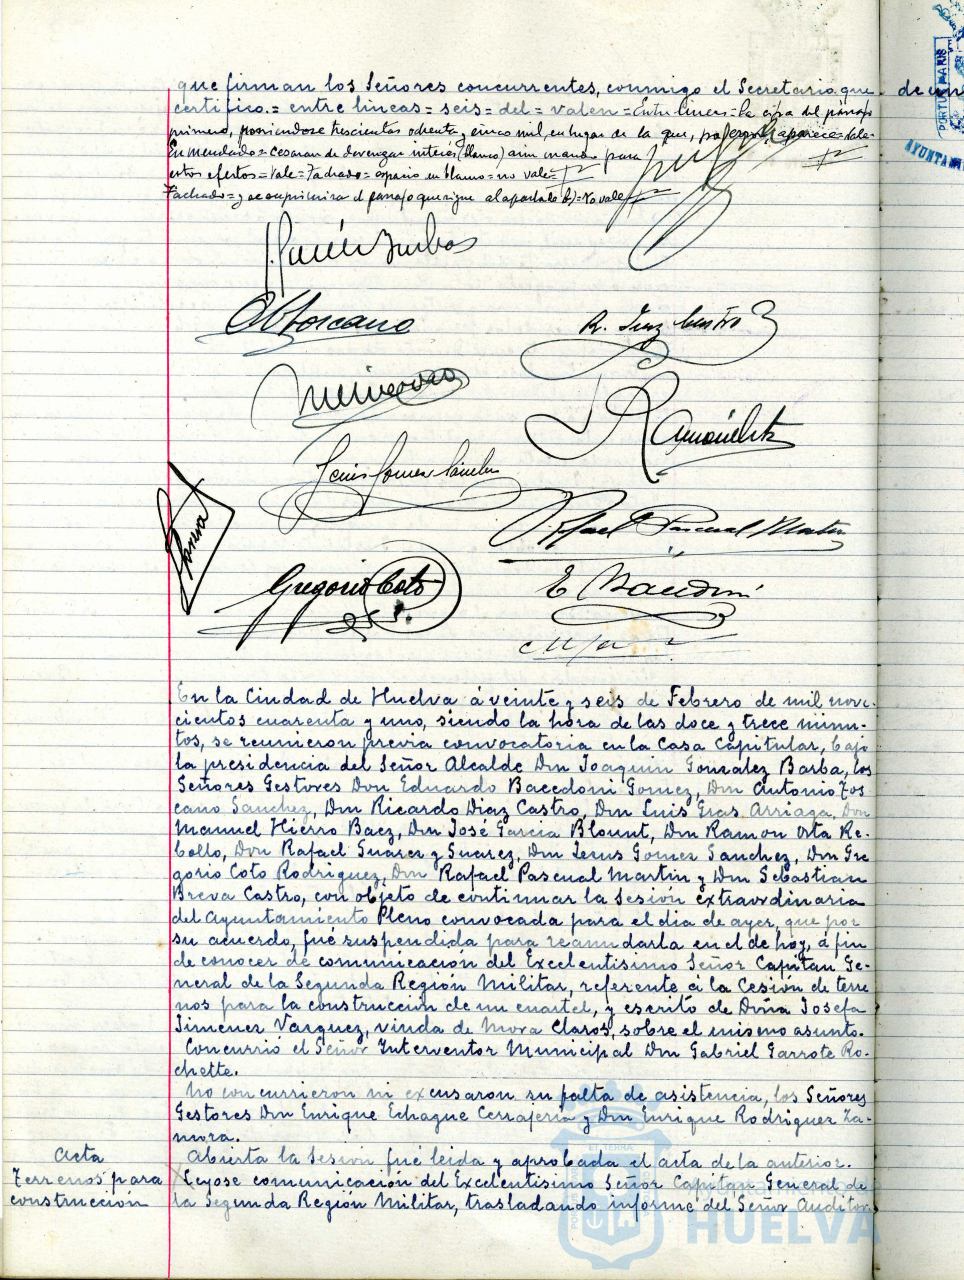 que firman los Señores concurrentes, conmigo el Secretario que
certifico.= entre lineas= seis= del= valen= Entre lineas= la cifra del párrafo
primero, poniendose trescientas ochenta y cinco mil, en lugar de la que, por error, aparece= Vale=
Enmendado= cesaran de devengar interés (blanco) asi mando para
estos efectos= Vale= Tachado= espacio en blanco= no vale=
Tachado= y se suprimira el parrafo que sigue al apartado b)= No vale
R. Diaz Castro
Rafael Pascual Martin
Gregorio Coto
E Bacedoni
En la Ciudad de Huelva á veinte y seis de Febrero de mil nove-
cientos cuarenta y uno, siendo la hora de las doce y trece minu-
tos, se reunieron previa convocatoria en la Casa Capitular, bajo
la presidencia del Señor Alcalde Don Joaquin Gonzalez Barba, los
Señores Gestores Don Eduardo Bacedoni Gomez, Don Antonio Tos
cano Sanchez, Don Ricardo Diaz Castro, Don Luis Gras Arriaga, Don
Manuel Hierro Baez, Don José Garcia Blount, Don Ramon Orta Re-
bollo, Don Rafael Suarez y Suarez, Don Jesus Gomez Sanchez, Don Gre
gorio Coto Rodriguez, Don Rafael Pascual Martin y Don Sebastian
Breva Castro, con objeto de continuar la sesión extraordinaria
del Ayuntamiento Pleno convocada para el dia de ayer, que por
su acuerdo, fué suspendida para reanudarla en el de hoy, á fin
de conocer de comunicación del Excelentisimo Señor Capitan Ge-
neral de la Segunda Región Militar, referente á la Cesión de terre
nos para la construcción de un cuartel, y escrito de Doña Josefa
Jimenez Vazquez, viuda de Mora Claros, sobre el mismo asunto.
Concurrió el Señor Interventor Municipal Don Gabriel Garrote Ro-
chette.
No concurrieron ni excusaron su falta de asistencia, los Señores
Gestores Don Enrique Echague Cerrajeria y Don Enrique Rodriguez Za-
mora.
Acta
Abierta la Sesion fué leida y aprobada el acta de la anterior.
Terrenos para
construcción
Leyose comunicación del Excelentisimo Señor Capitan General de
la Segunda Región Militar, trasladando informe del Señor Auditor
HUELVA